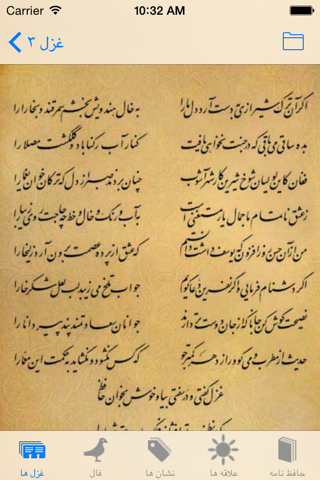 Carrier 10:32 AM
غزل ۳
اگر آن ترک شیرازی به دست آرد دل ما را به خال هندویش بخشم سمرقند و بخارا را
بده ساقی می باقی که در جنت نخواهی یافت کنار آب رکناباد و گلگشت مصلا را
فغان کاین لولیان شوخ شیرین کار شهرآشوب چنان بردند صبر از دل که ترکان خوان یغما را
ز عشق ناتمام ما جمال یار مستغنی است به آب و رنگ و خال و خط چه حاجت روی زیبا را
من از آن حسن روزافزون که یوسف داشت دانستم که عشق از پرده عصمت برون آرد زلیخا را
اگر دشنام فرمایی و گر نفرین دعا گویم جواب تلخ می زیبد لب لعل شکرخا را
نصیحت گوش کن جانا که از جان دوست تر دارند جوانان سعادتمند پند پیر دانا را
حدیث از مطرب و می گو و راز دهر کمتر جو که کس نگشود و نگشاید به حکمت این معما را
غزل گفتی و در سفتی بیا و خوش بخوان حافظ
غزل ها فال نشان ها علاقه ها حافظ نامه